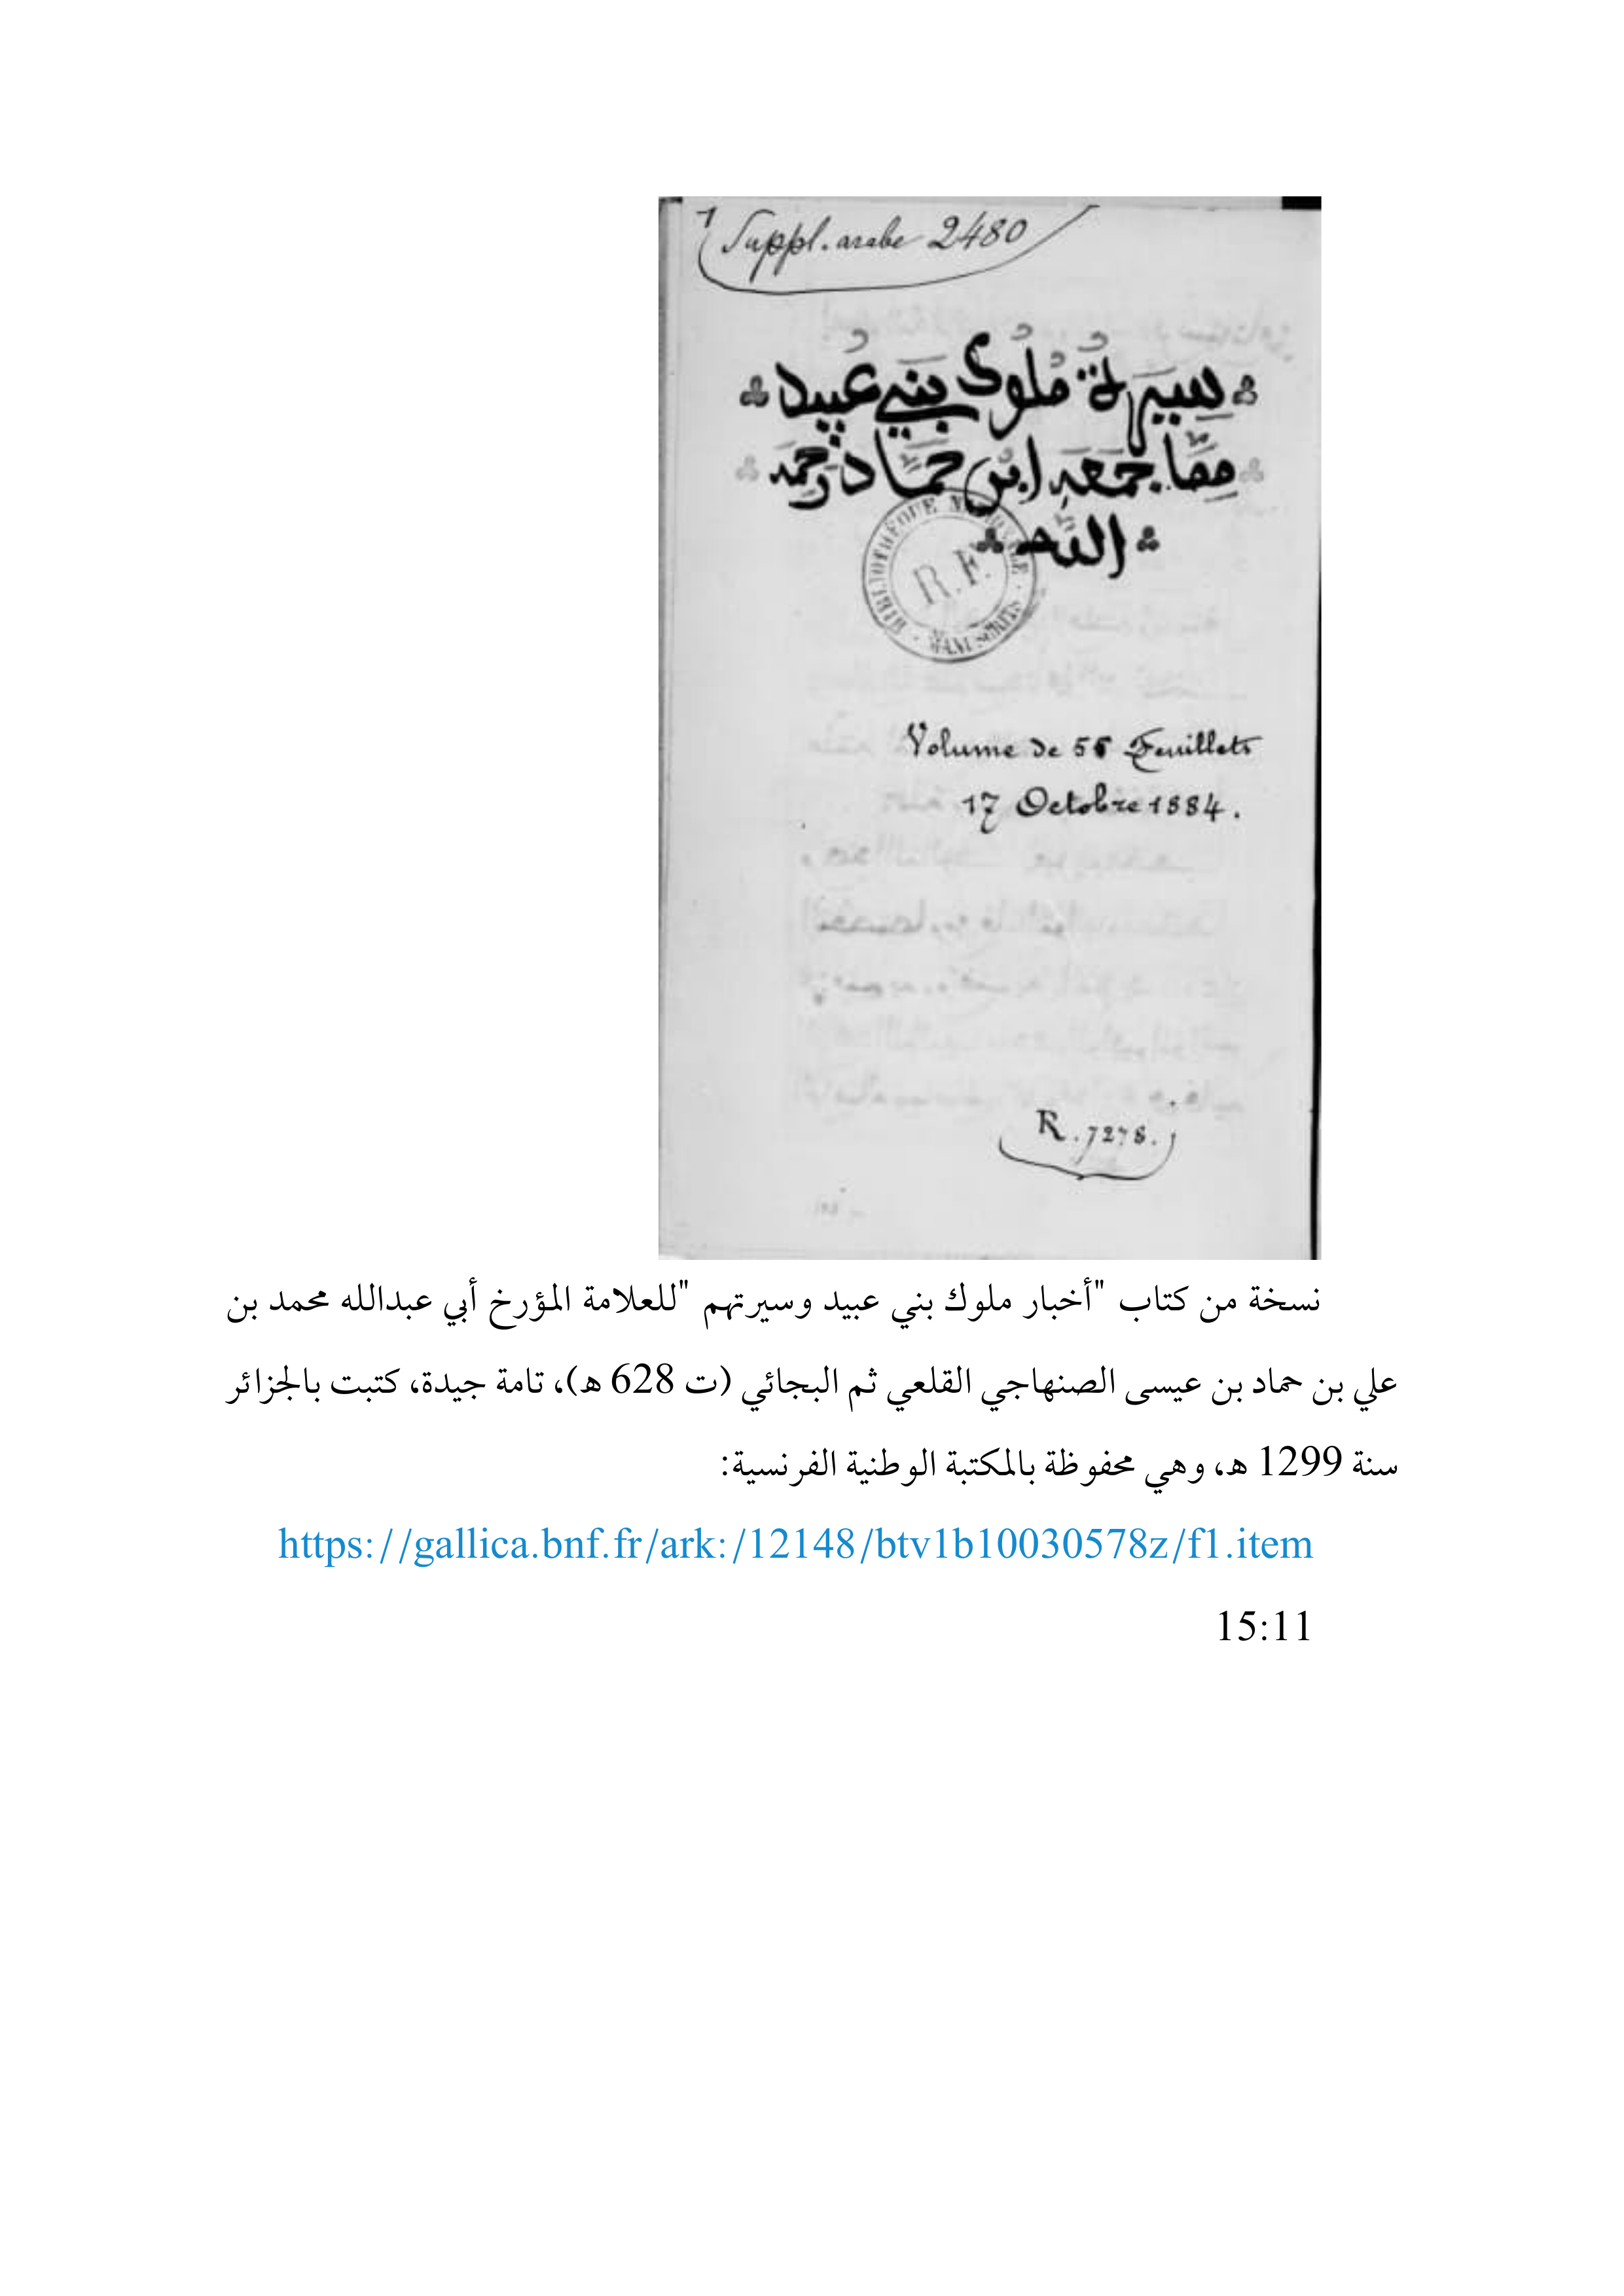 Suppl. arabe 2480
سِيرَةُ مُلُوكِ بَنِي عُبَيْد
مِمَّا جَمَعَهُ ابْن حَمَّاد رَحِمَه
الله
BIBLIOTHÈQUE NATIONALE
R.F.
MANUSCRITS
Volume de 56 Feuillets
17 Octobre 1884.
R. 7278.
نسخة من كتاب "أخبار ملوك بني عبيد وسيرتهم "للعلامة المؤرخ أبي عبدالله محمد بن
علي بن حماد بن عيسى الصنهاجي القلعي ثم البجائي (ت 628 ه)، تامة جيدة، كتبت بالجزائر
سنة 1299 ه، وهي محفوظة بالمكتبة الوطنية الفرنسية:
https://gallica.bnf.fr/ark:/12148/btv1b10030578z/f1.item
15:11